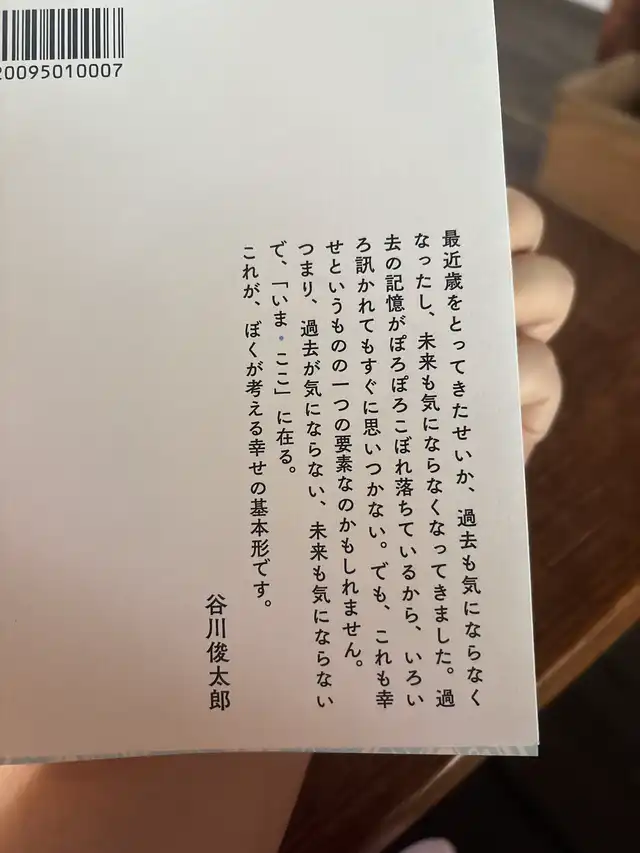 20095010007
最近歳をとってきたせいか、過去も気にならなく
なったし、未来も気にならなくなってきました。過
去の記憶がぽろぽろこぼれ落ちているから、いろい
ろ訊かれてもすぐに思いつかない。でも、これも幸
せというものの一つの要素なのかもしれません。
つまり、過去が気にならない、未来も気にならない
で、「いま・ここ」に在る。
これが、ぼくが考える幸せの基本形です。
谷川俊太郎